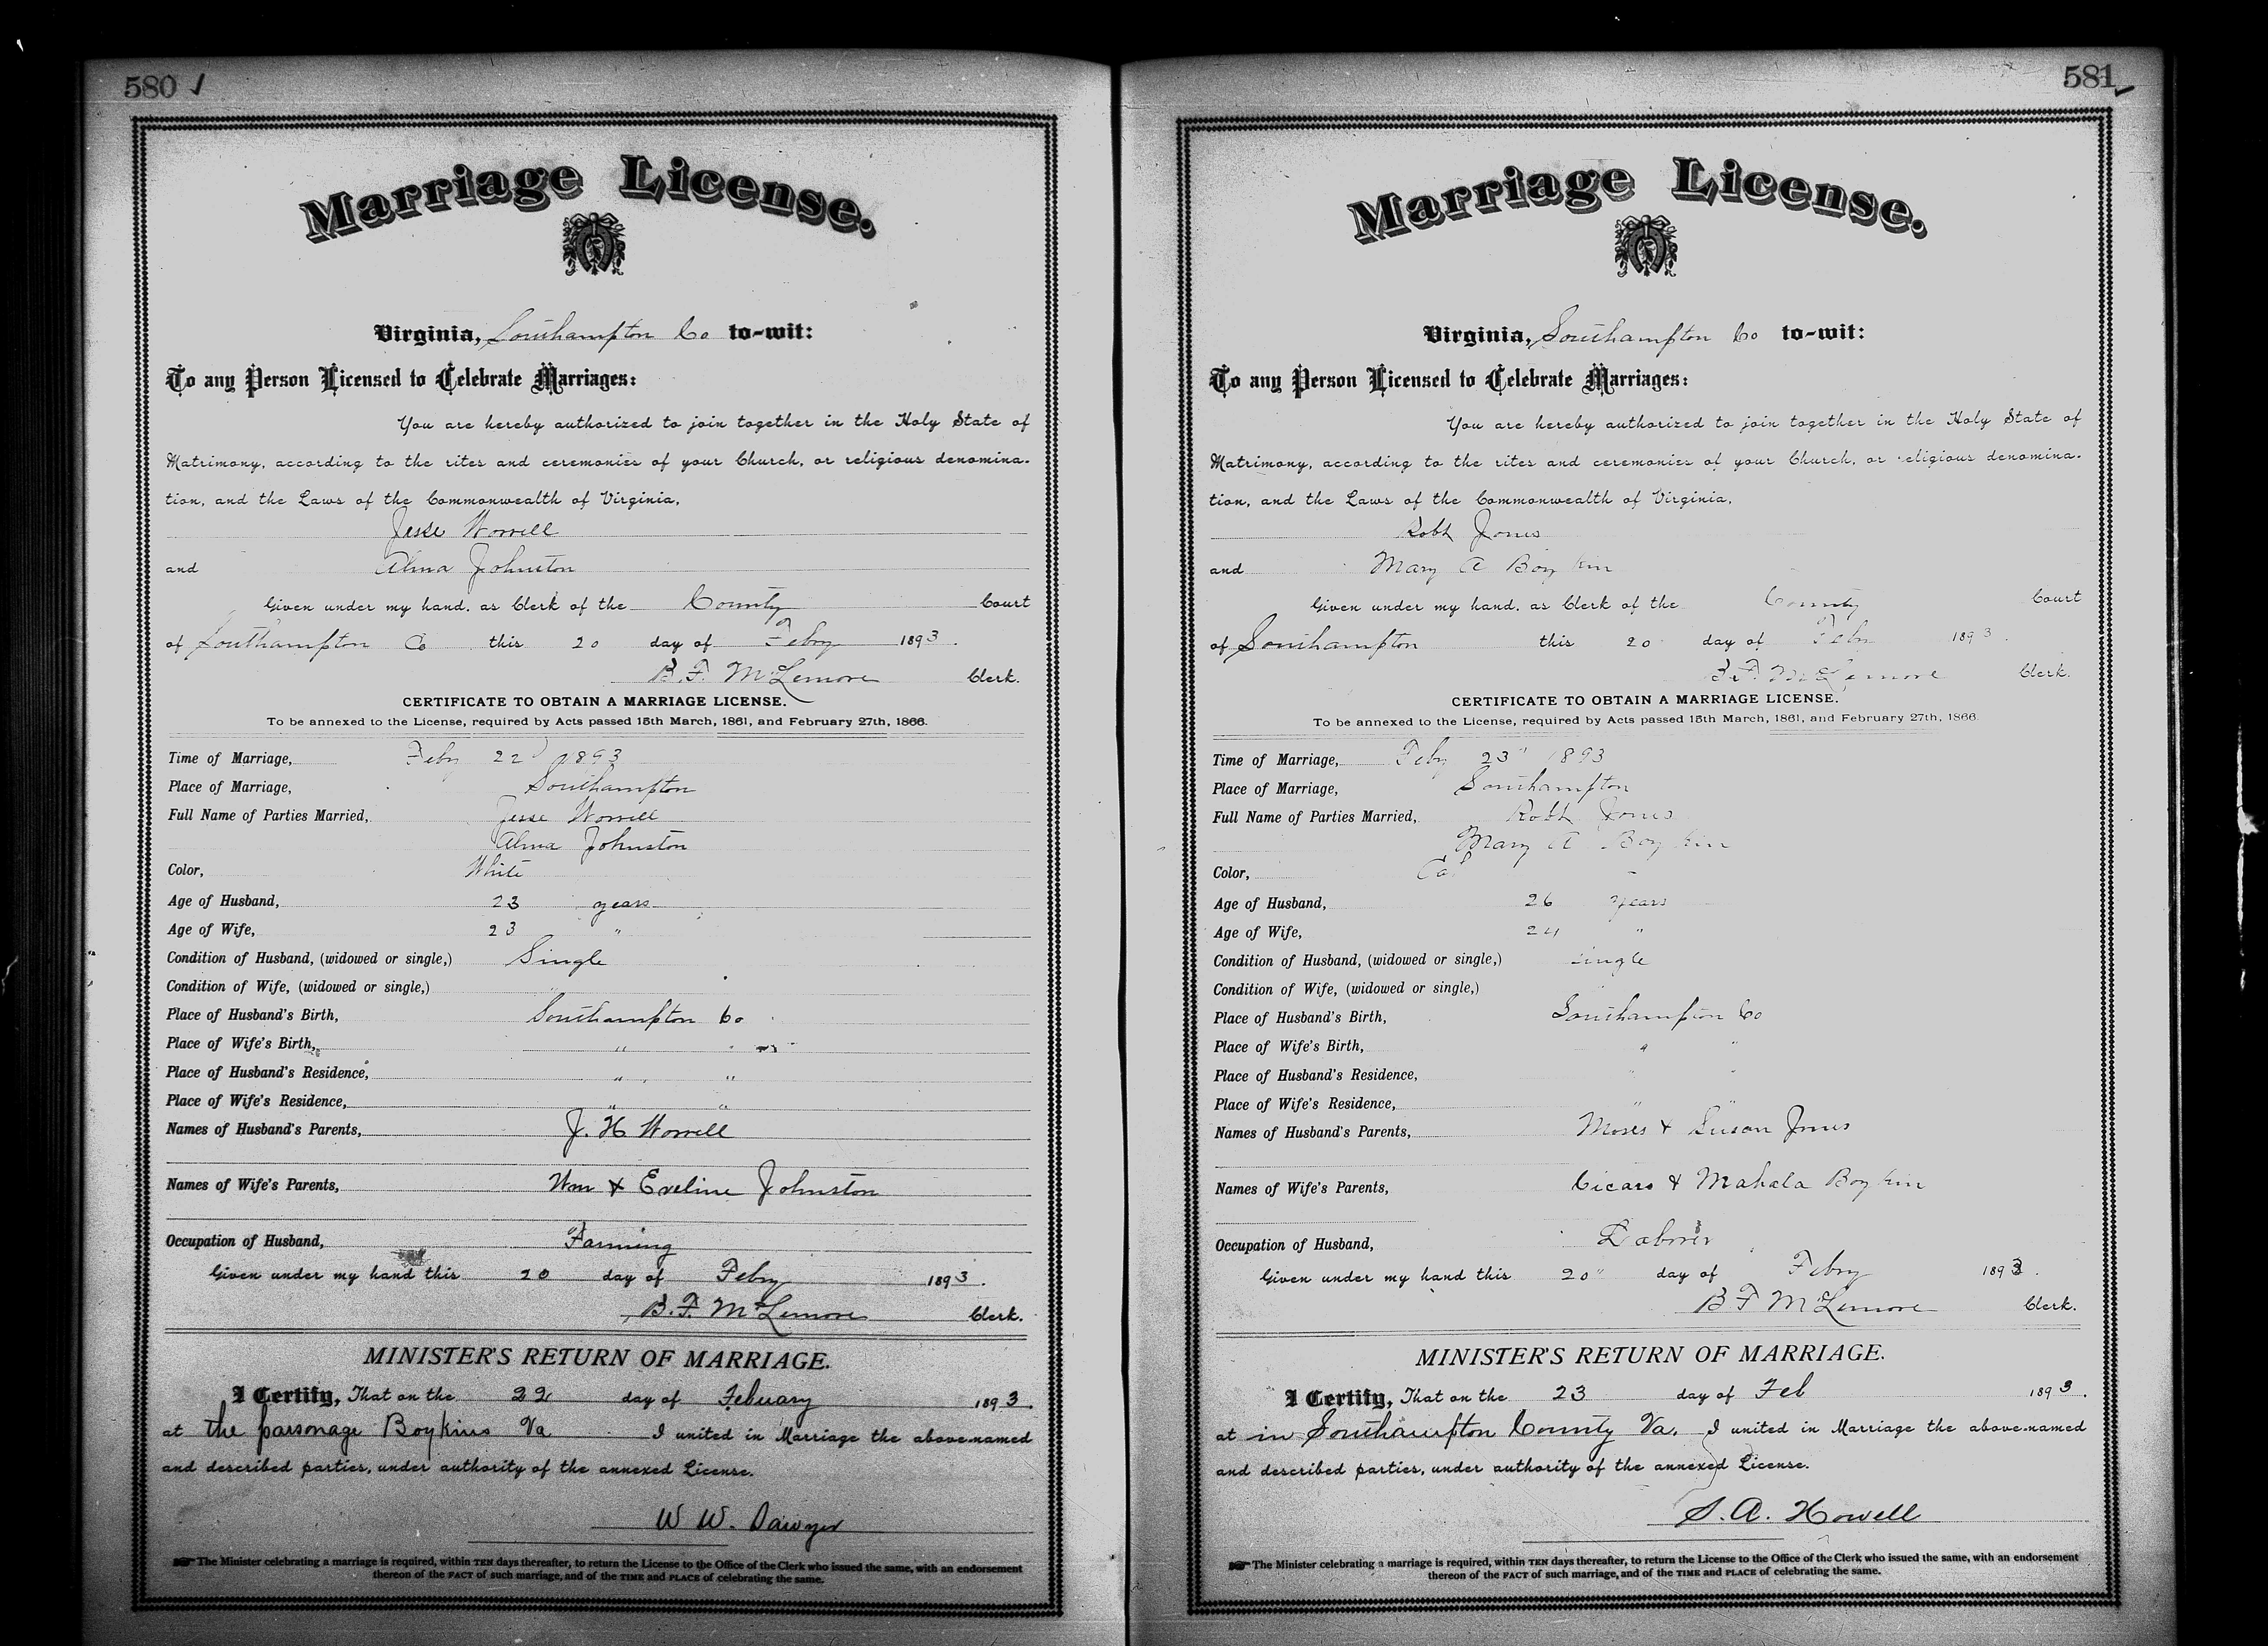 580
Marriage License.
Virginia, Southampton Co to-wit:
To any Person Licensed to Celebrate Marriages:
You are hereby authorized to join together in the Holy State of
Matrimony, according to the rites and ceremonies of your Church, or religious denomina-
tion, and the Laws of the Commonwealth of Virginia,
Jesse Worrell
and Alma Johnston
Given under my hand, as Clerk of the County Court
of Southampton Co this 20 day of Feby 1893.
B. F. McLemore Clerk.
CERTIFICATE TO OBTAIN A MARRIAGE LICENSE.
To be annexed to the License, required by Acts passed 15th March, 1861, and February 27th, 1866.
Time of Marriage, Feby 22 1893
Place of Marriage, Southampton
Full Name of Parties Married, Jesse Worrell
Alma Johnston
Color, White
Age of Husband, 23 years
Age of Wife, 23 "
Condition of Husband, (widowed or single,) Single
Condition of Wife, (widowed or single,) "
Place of Husband's Birth, Southampton Co
Place of Wife's Birth, " "
Place of Husband's Residence, " "
Place of Wife's Residence, " "
Names of Husband's Parents, J. H Worrell
Names of Wife's Parents, Wm & Eveline Johnston
Occupation of Husband, Farming
Given under my hand this 20 day of Feby 1893.
B. F. McLemore Clerk.
MINISTER'S RETURN OF MARRIAGE.
I Certify, That on the 22 day of Febuary 1893.
at the parsonage Boykins Va I united in Marriage the above-named
and described parties, under authority of the annexed License.
W W. Sawyer
The Minister celebrating a marriage is required, within TEN days thereafter, to return the License to the Office of the Clerk who issued the same, with an endorsement
thereon of the FACT of such marriage, and of the TIME and PLACE of celebrating the same.
581
Marriage License.
Virginia, Southampton Co to-wit:
To any Person Licensed to Celebrate Marriages:
You are hereby authorized to join together in the Holy State of
Matrimony, according to the rites and ceremonies of your Church, or religious denomina-
tion, and the Laws of the Commonwealth of Virginia,
Robt Jones
and Mary A Boykin
Given under my hand, as Clerk of the County Court
of Southampton this 20 day of Feby 1893.
B. F. McLemore Clerk.
CERTIFICATE TO OBTAIN A MARRIAGE LICENSE.
To be annexed to the License, required by Acts passed 15th March, 1861, and February 27th, 1866.
Time of Marriage, Feby 23" 1893
Place of Marriage, Southampton
Full Name of Parties Married, Robt Jones
Mary A Boykin
Color, Col
Age of Husband, 26 years
Age of Wife, 24 "
Condition of Husband, (widowed or single,) Single
Condition of Wife, (widowed or single,)
Place of Husband's Birth, Southampton Co
Place of Wife's Birth, " "
Place of Husband's Residence, " "
Place of Wife's Residence, " "
Names of Husband's Parents, Moses & Susan Jones
Names of Wife's Parents, Cicaro & Mahala Boykin
Occupation of Husband, Laborer
Given under my hand this 20" day of Feby 1893.
B F McLemore Clerk.
MINISTER'S RETURN OF MARRIAGE.
I Certify, That on the 23 day of Feb 1893.
at in Southampton County Va. I united in Marriage the above-named
and described parties, under authority of the annexed License.
S. A. Howell
The Minister celebrating a marriage is required, within TEN days thereafter, to return the License to the Office of the Clerk who issued the same, with an endorsement
thereon of the FACT of such marriage, and of the TIME and PLACE of celebrating the same.